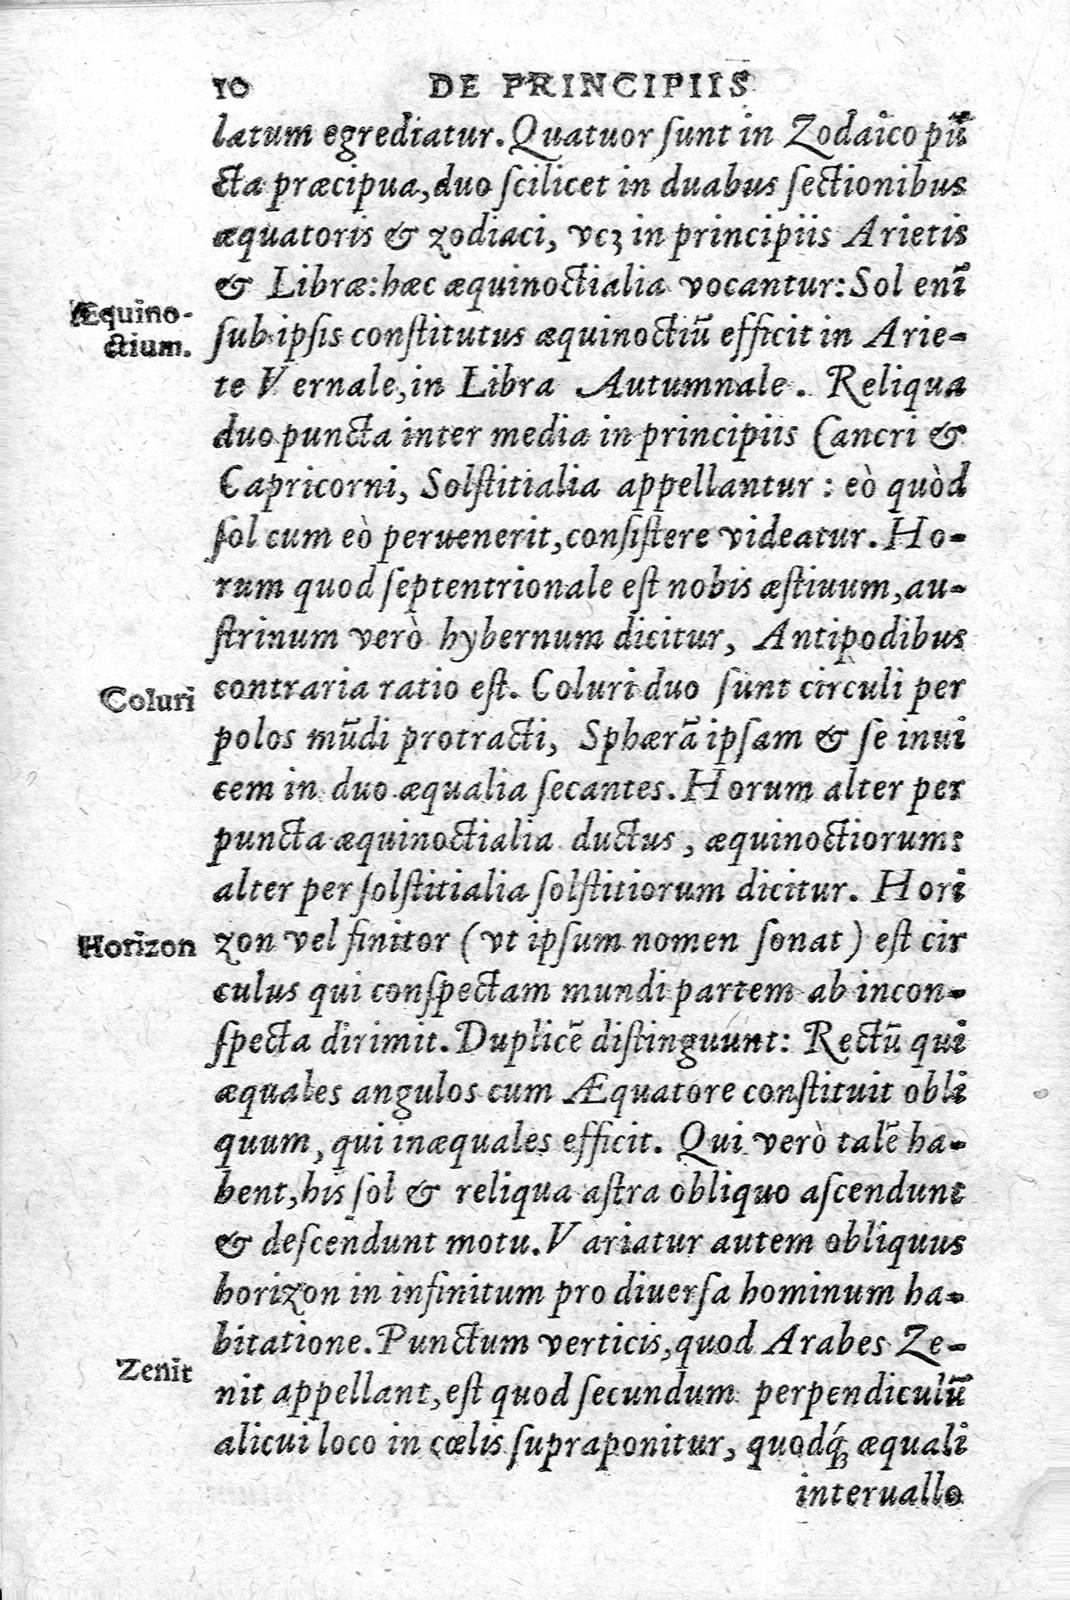 10 DE PRINCIPIIS
latum egrediatur. Quatuor ſunt in Zodaico pũ
cta præcipua, duo ſcilicet in duabus ſectionibus
æquatoris & zodiaci, vcꝫ in principiis Arietis
& Libræ: hæc æquinoctialia vocantur: Sol enĩ
Æquino-
ctium.
ſub ipſis conſtitutus æquinoctiũ efficit in Arie-
te V ernale, in Libra Autumnale. Reliqua
duo puncta inter media in principiis Cancri &
Capricorni, Solſtitialia appellantur: eò quòd
ſol cum eò peruenerit, conſiſtere videatur. Ho-
rum quod ſeptentrionale eſt nobis æſtiuum, au-
ſtrinum verò hybernum dicitur, Antipodibus
Coluri
contraria ratio eſt. Coluri duo ſunt circuli per
polos mũdi protracti, Sphærã ipſam & ſe inui
cem in duo æqualia ſecantes. Horum alter per
puncta æquinoctialia ductus, æquinoctiorum:
alter per ſolſtitialia ſolſtitiorum dicitur. Hori
Horizon
zon vel finitor (vt ipſum nomen ſonat) eſt cir
culus qui conſpectam mundi partem ab incon-
ſpecta dirimit. Duplicẽ diſtinguunt: Rectũ qui
æquales angulos cum Æquatore conſtituit obli
quum, qui inæquales efficit. Qui verò talẽ ha-
bent, his ſol & reliqua aſtra obliquo aſcendunt
& deſcendunt motu. V ariatur autem obliquus
horizon in infinitum pro diuerſa hominum ha-
bitatione. Punctum verticis, quod Arabes Ze-
Zenit
nit appellant, eſt quod ſecundum perpendiculũ
alicui loco in cœlis ſupraponitur, quodq́ꝫ æquali
interuallo